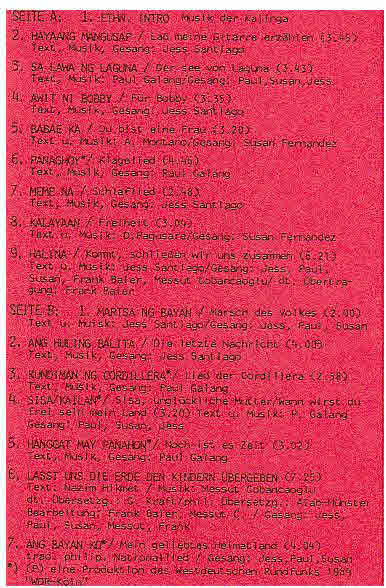 SEITE A: 1. ETHN. INTRO Musik der Kalinga
2. HAYAANG MANGUSAP / Laß meine Gitarre erzählen (3.45)
Text, Musik, Gesang: Jess Santiago
3. SA LAWA NG LAGUNA / Der See von Laguna (3.43)
Text, Musik: Paul Galang/Gesang: Paul, Susan, Jess
4. AWIT NI BOBBY / Für Bobby (3.35)
Text, Musik, Gesang: Jess Santiago
5. BABAE KA / Du bist eine Frau (3.20)
Text u. Musik: A. Montano/Gesang: Susan Fernandez
6. PANAGHOY*/ Klagelied (4.46)
Text, Musik, Gesang: Paul Galang
7. MEME NA / Schlaflied (2.48)
Text, Musik, Gesang: Jess Santiago
8. KALAYAAN / Freiheit (3.04)
Text u. Musik: D. Pagusara/Gesang: Susan Fernandez
9. HALINA / Kommt, schließen wir uns zusammen (6.21)
Text u. Musik: Jess Santiago/Gesang: Jess, Paul,
Susan, Frank Baier, Messut Cobancaoglu/ dt. Übertra-
gung: Frank Baier
SEITE B: 1. MARTSA NG BAYAN / Marsch des Volkes (2.00)
Text u. Musik: Jess Santiago/Gesang: Jess, Paul, Susan
2. ANG HULING BALITA / Die letzte Nachricht (4.00)
Text, Musik, Gesang: Jess Santiago
3. KUNDIMAN NG CORDILLERA*/ Lied der Cordillera (2.58)
Text, Musik, Gesang: Paul Galang
4. SISA/KAILAN*/ Sisa, unglückliche Mutter/Wann wirst du
frei sein mein Land (3.20) Text u. Musik: P. Galang
Gesang: Paul, Susan, Jess
5. HANGGAT MAY PANAHON*/ Noch ist es Zeit (3.02)
Text, Musik, Gesang: Paul Galang
6. LASST UNS DIE ERDE DEN KINDERN ÜBERGEBEN (7.25)
Text: Nazim Hikmet / Musik: Messut Cobancaoglu
dt. Übersetzg.: G. Kraft/phil. Übersetzg.: AIab-Münster
Bearbeitung: Frank Baier, Messut C. / Gesang: Jess,
Paul, Susan, Messut, Frank
7. ANG BAYAN KO*/ Mein geliebtes Heimatland (4.04)
tradi philip. Nationallied / Gesang: Jess, Paul, Susan
*) (P) eine Produktion des Westdeutschen Rundfunks 1989
"WDR-Köln"